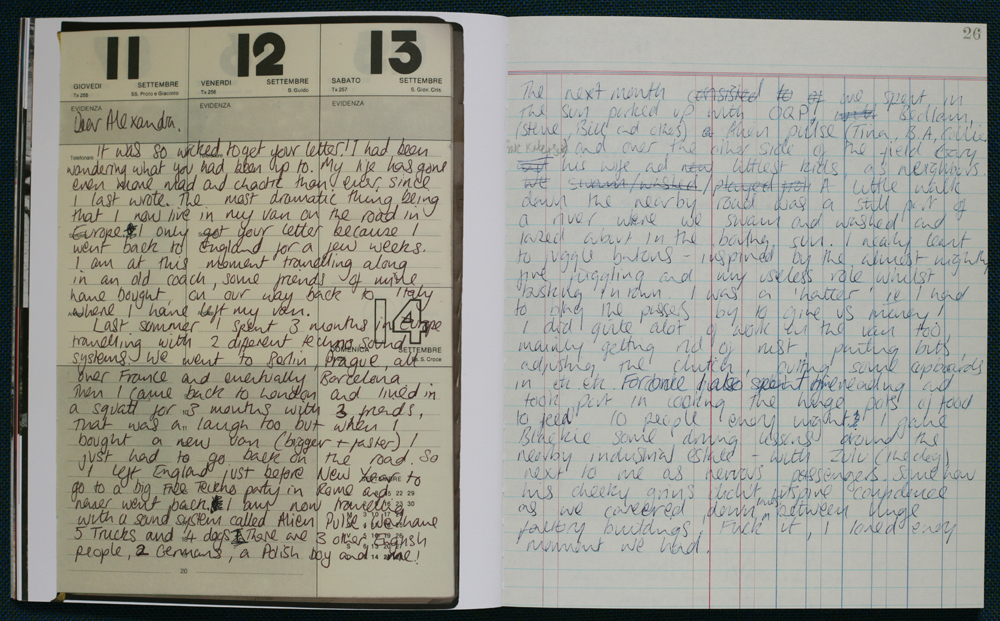 11
GIOVEDI SETTEMBRE
Tx 255 SS. Proto e Giacinto
12
VENERDI SETTEMBRE
Tx 256 S. Guido
13
SABATO SETTEMBRE
Tx 257 S. Giov. Cris.
EVIDENZA
EVIDENZA
EVIDENZA
Dear Alexandra,
Telefonare
It was so wicked to get your letter! I had been
wondering what you had been up to. My life has gone
even more mad and chaotic than ever since
I last wrote. The most dramatic thing being
that I now live in my van on the road in
Europe. I only got your letter because I
went back to England for a few weeks.
I am at this moment travelling along
in an old coach, some friends of mine
have bought, on our way back to Italy
where I have left my van.
14
DOMENICA SETTEMBRE
S. Croce
Last summer I spent 3 months in Europe
travelling with 2 different techno sound
systems. We went to Berlin, Prague, all
over France and eventually Barcelona.
Then I came back to London and lived in
a squatt for 3 months with 3 friends,
that was a laugh too but when I
bought a new van (bigger + faster) I
just had to go back on the road. So
I left England just before New Year to
go to a big Free Tekno party in Rome and
never went back. I am now travelling
with a sound system called Alien Pulse. We have
5 trucks and 4 dogs. There are 3 other English
people, 2 Germans, a Polish boy and me!
20
26
The next month consisted to of we spent in
the sun parked up with OQP, Bedlam,
(Steve, Bill and ) a Alien pulse (Tina, B.A, Collie
and over the other side of the field Gary
his wife and new littlest kids as neighbours.
We swam/washed/played A little walk
down the nearby road was a still part of
a river where we swam and washed and
lazed about in the boiling sun. I nearly learnt
to juggle batons - inspired by the almost nightly
fire juggling and my useless role whilst
busking in town. I was a 'hatter' ie I had
to bring the passers by to give us money!
I did quite alot of work on the van too,
mainly getting rid of rust, putting bits,
adjusting the clutch, putting some cupboards
in etc.etc. For once I also spent reading and
took part in cooking the huge pots of food
to feed 10 people every night! I gave
Blackie some driving lessons around the
nearby industrial estate - with Zulu (the dog)
next to me as nervous passengers. Somehow
his cheeky grins didn't give confidence
as we careered down in between huge
factory buildings, Fuck it, I loved every
moment we had.